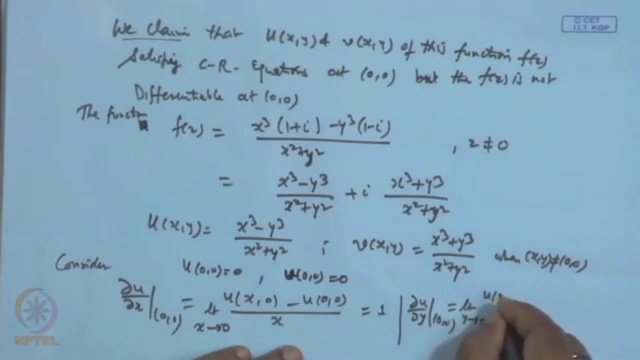 © CET
I.I.T. KGP
We claim that u(x,y) & v(x,y) of this function f(z)
Satisfying C-R- Equations at (0,0) but the f(z) is not
Differentiable at (0,0)
The function f(z) = x³(1+i) - y³(1-i) / x²+y² , z ≠ 0
= x³-y³ / x²+y² + i x³+y³ / x²+y²
u(x,y) = x³-y³ / x²+y² ; v(x,y) = x³+y³ / x²+y² when (x,y)≠(0,0)
Consider u(0,0)=0 , v(0,0)=0
∂u/∂x |(0,0) = lt x→0 u(x,0) - u(0,0) / x = 1 | ∂u/∂y |(0,0) = lt
NPTEL